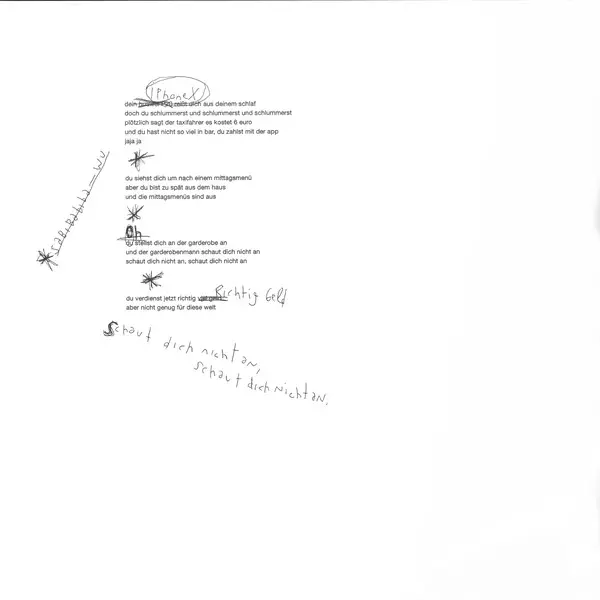 iPhoneX
dein reißt dich aus deinem schlaf
doch du schlummerst und schlummerst und schlummerst
plötzlich sagt der taxifahrer es kostet 6 euro
und du hast nicht so viel in bar, du zahlst mit der app
jaja ja
du siehst dich um nach einem mittagsmenü
aber du bist zu spät aus dem haus
und die mittagsmenüs sind aus
Oh
du stellst dich an der garderobe an
und der garderobenmann schaut dich nicht an
schaut dich nicht an, schaut dich nicht an
du verdienst jetzt richtig Richtig Geld
aber nicht genug für diese welt
Schaut dich nicht an,
schaut dich nicht an.